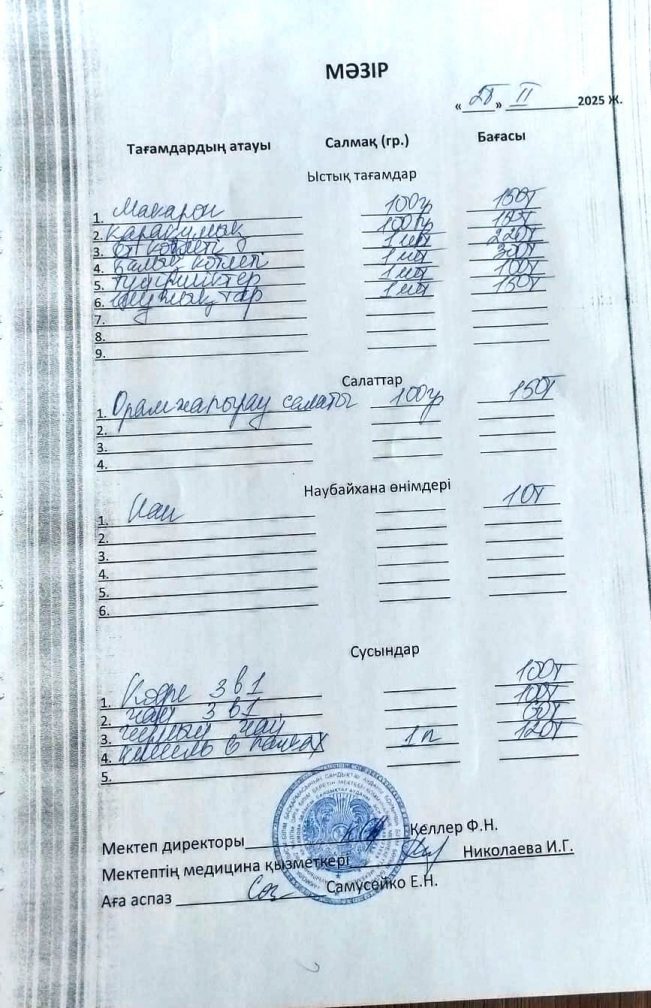 МӘЗІР
« 25 » II 2025 Ж.
Тағамдардың атауы Салмақ (гр.) Бағасы
Ыстық тағамдар
1. Макарон 100гр 150т
2. қарақұмық 100гр
3. ет котлеті 1шт 220т
4. балық котлеті 1шт 300т
5. 1шт 100т
6. 1шт 150т
7.
8.
9.
Салаттар
1. Орамжапырақ салаты 100гр 150т
2.
3.
4.
Наубайхана өнімдері
1. Нан 10т
2.
3.
4.
5.
6.
Сусындар
1. Кофе 3 в 1 100т
2. чай 3 в 1 100т
3. чай
4. кисель в пачках 1п 120т
5.
Мектеп директоры Келлер Ф.Н.
Мектептің медицина қызметкері Николаева И.Г.
Аға аспаз Самусейко Е.Н.